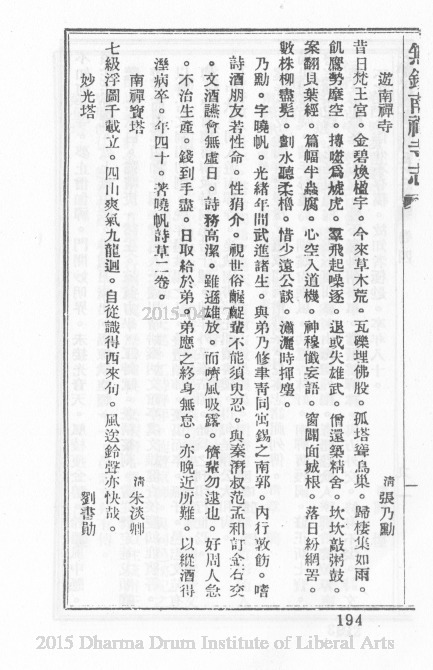 無錫南禪寺志
遊南禪寺
清 張乃勳
昔日梵王宮。金碧煥楹宇。今來草木荒。瓦礫埋佛股。孤塔聳鳥巢。歸棲集如雨。
飢鷹勢摩空。摶噬為虓虎。羣飛起噪逐。退或失雄武。僧還築精舍。坎坎敲粥鼓。
案翻貝葉經。篇幅半蟲腐。心空入道機。神穆懺妄語。窗闢面城根。落日紛網罟。
數株柳鬖髿。劃水聽柔櫓。惜少遠公談。瀟灑時揮麈。
乃勳。字曉帆。光緒年間武進諸生。與弟乃修聿青同寓錫之南郭。內行敦飭。嗜
詩酒朋友若性命。性狷介。視世俗齷齪輩不能須臾忍。與秦淵叔范孟和訂金石交
。文酒讌會無虛日。詩務高潔。雖遜雄放。而嚌風吸露。儕輩勿逮也。好周人急
。不治生產。錢到手盡。日取給於弟。弟應之終身無怠。亦晚近所難。以縱酒得
溼病卒。年四十。著曉帆詩草二卷。
南禪寶塔
清 朱淡卿
七級浮圖千載立。四山爽氣九龍迴。自從識得西來句。風送鈴聲亦快哉。
妙光塔
劉書勛
194
2015 Dharma Drum Institute of Liberal Arts